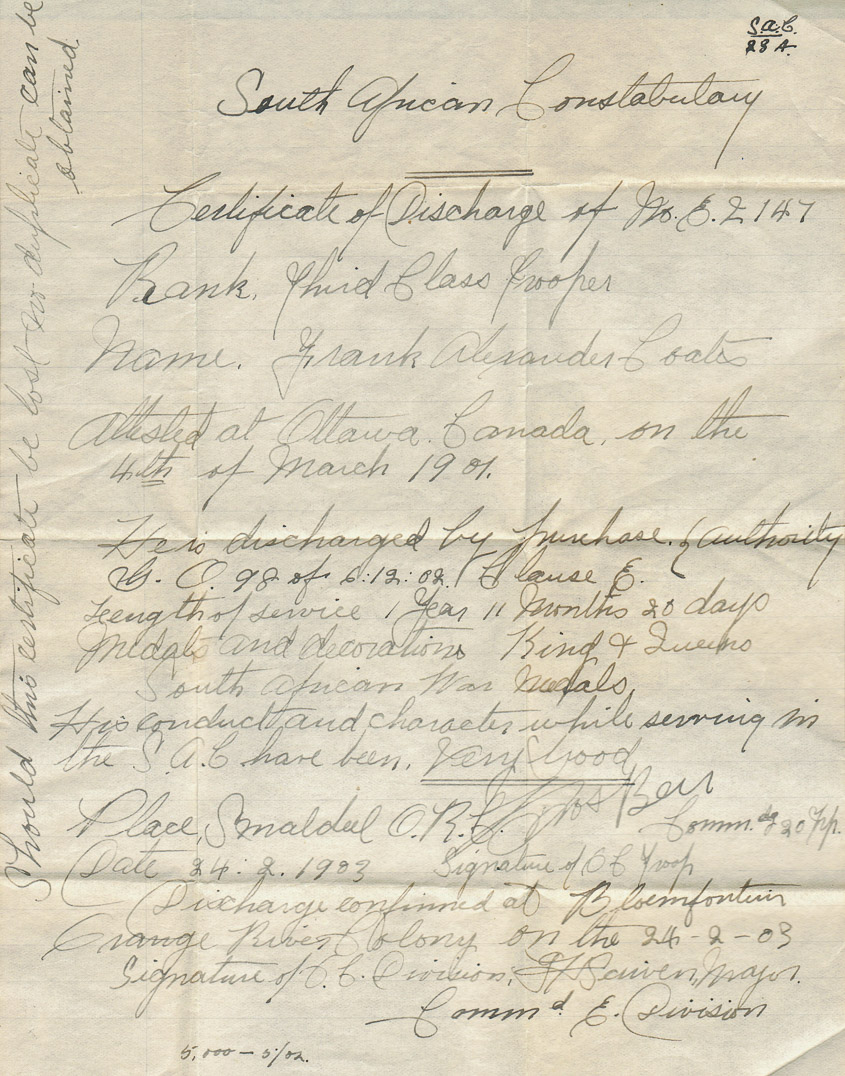 S.A.C.
28 A.
South African Constabulary
Certificate of Discharge of No. E. 2147
Rank. Third Class Trooper
Name. Frank Alexander Coates
Attested at Ottawa. Canada, on the
4th of March 1901.
He is discharged by purchase. (Authority
G. O. 98 of 6:12:02. Clause E.
Length of service 1 Year 11 Months 20 days
Medals and decorations King & Queens
South African War Medals,
His conduct and character while serving in
the S.A.C have been. Very Good
Place, Smaldeel O.R.C.
Comm.dg 20 Trp.
Date 24.2.1903 Signature of OC Troop
Discharge confirmed at Bloemfontein
Orange River Colony on the 24-2-03
Signature of O.C. Division, Major.
Commd E. Division
5,000-5/02.
Should this certificate be lost no duplicate can be
obtained